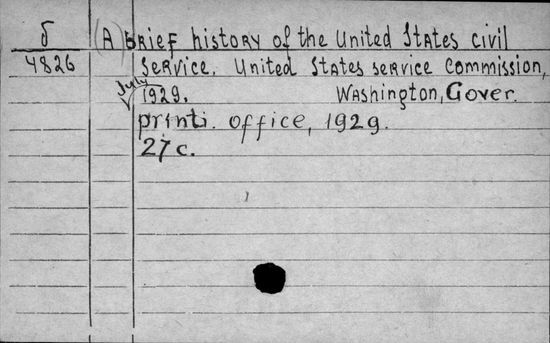 б (A) Brief history of the United States civil
4826 Service. United States service commission,
July 1929. Washington, Gover.
printi. office, 1929.
27 c.